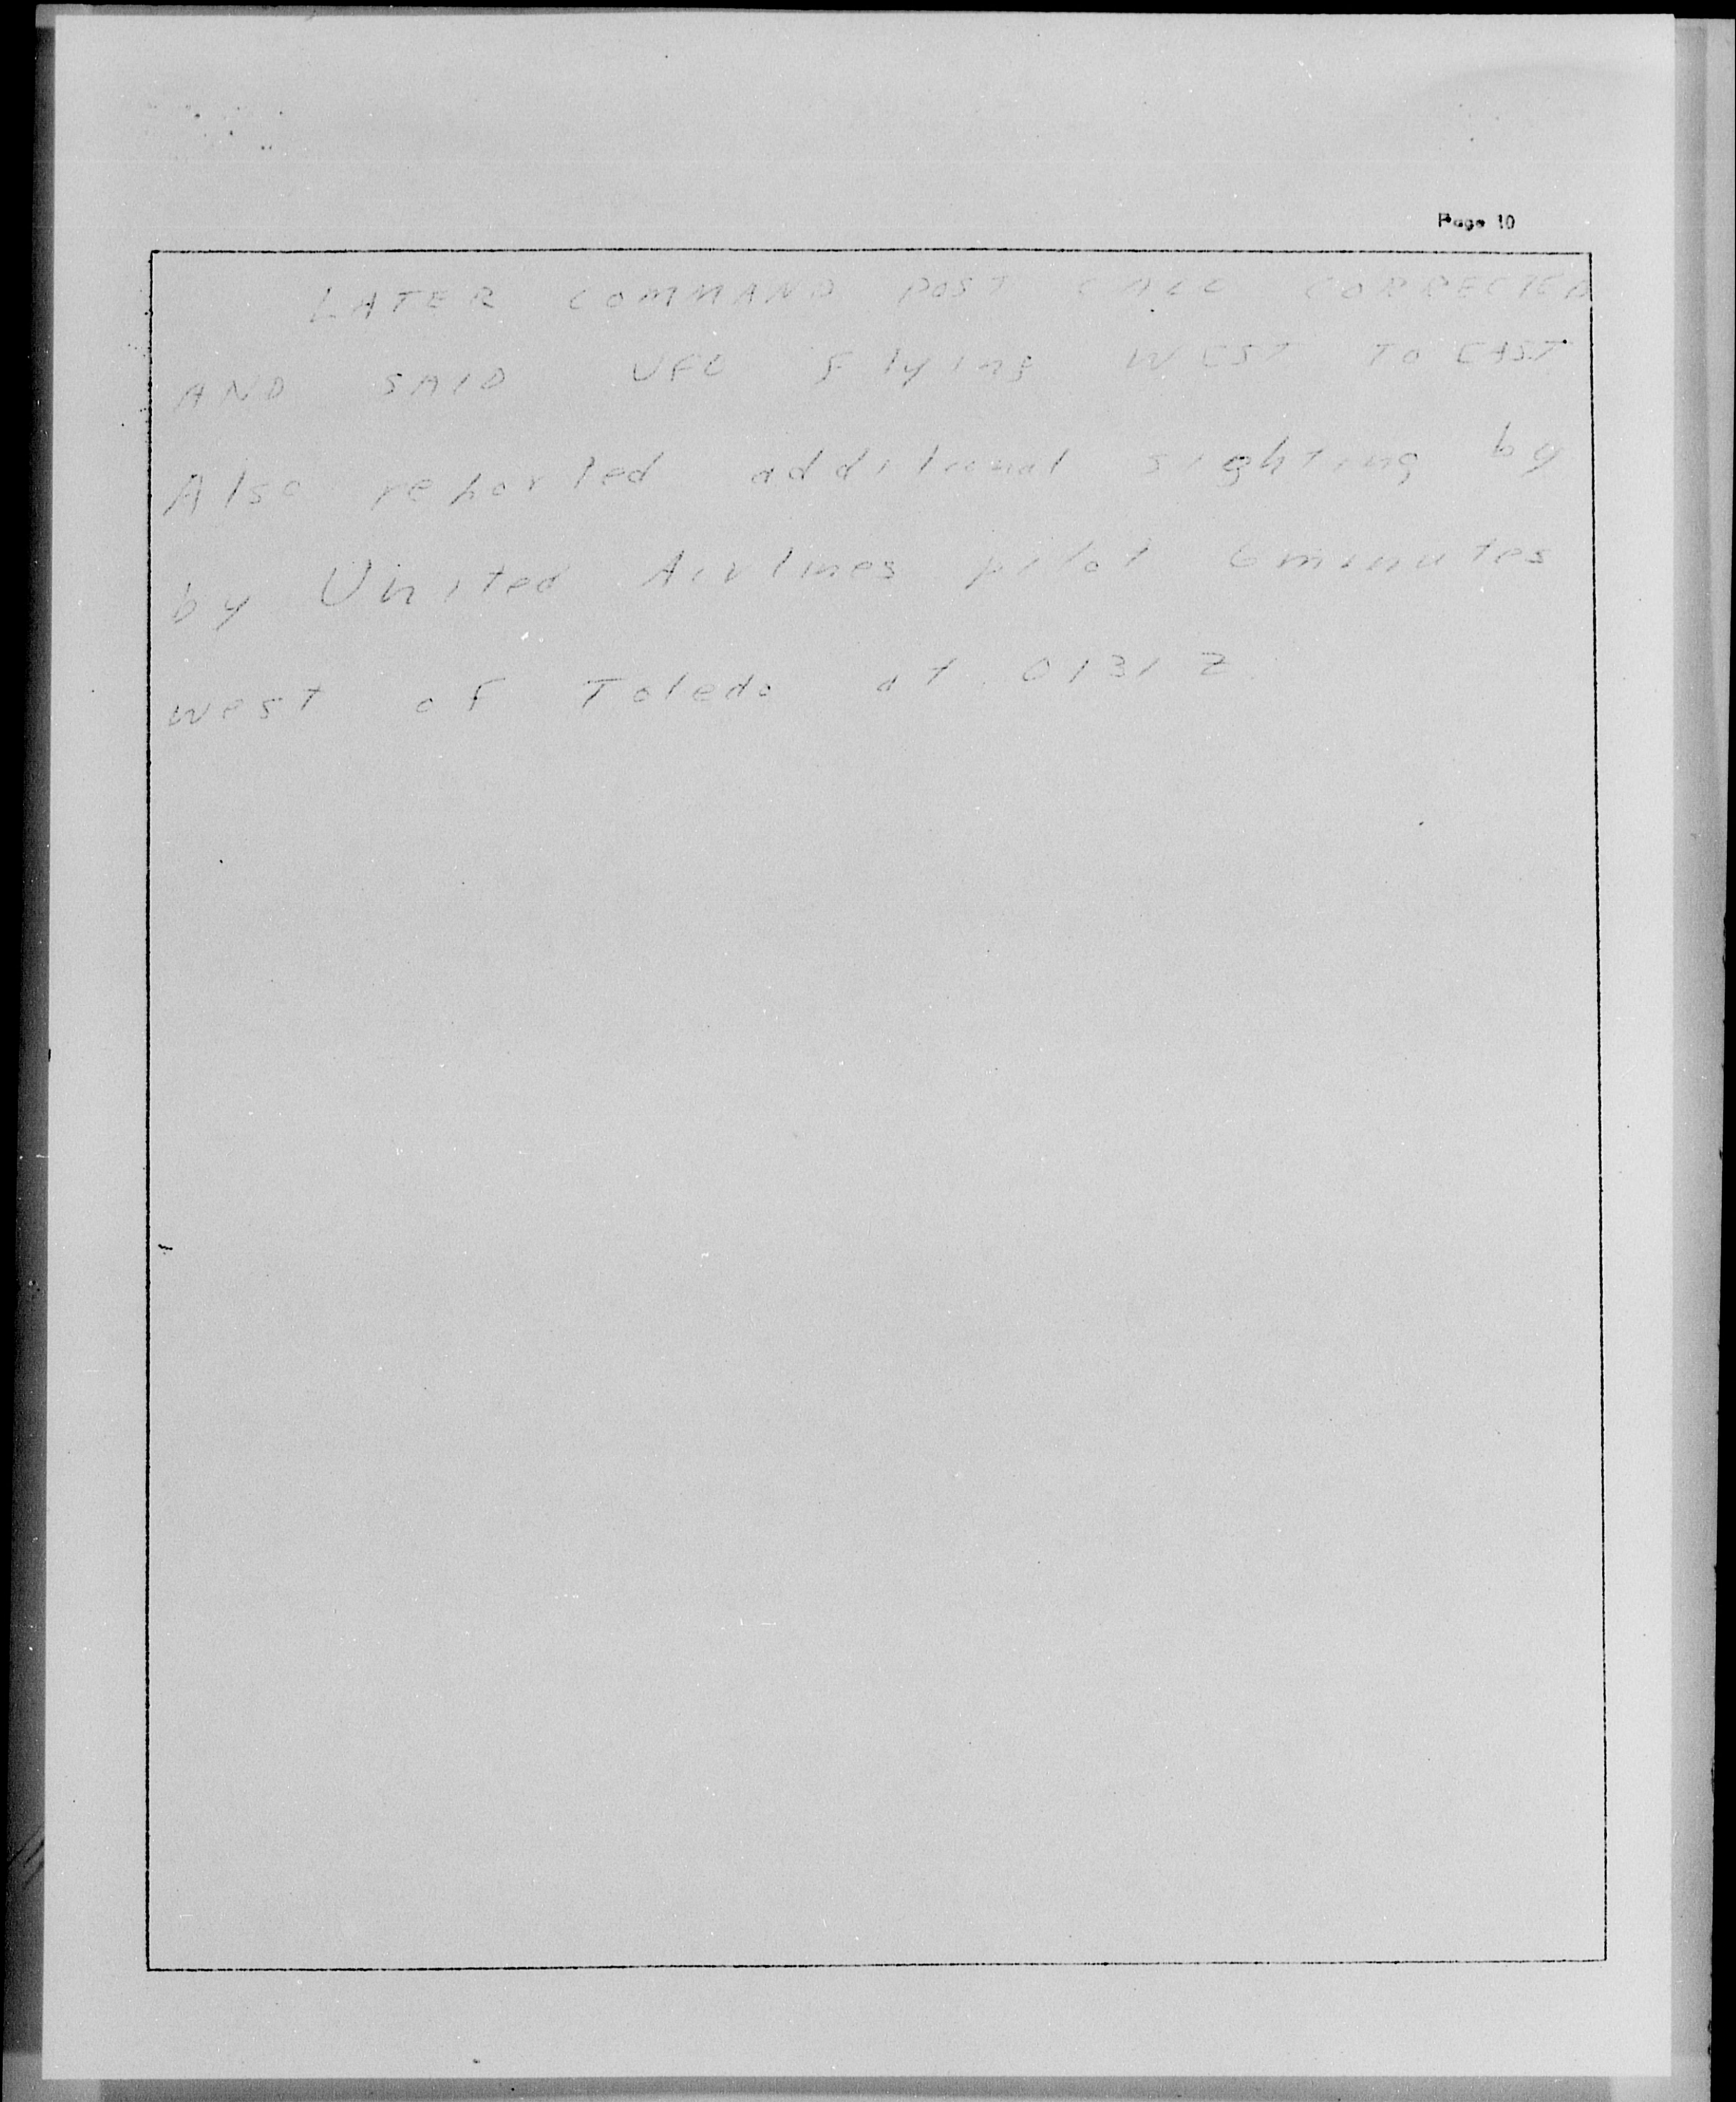 Page 10
LATER COMMAND POST CALL CORRECTED
AND SAID UFO Flying WEST TO EAST
Also reported additional sighting by
by United Airlines pilot 6 minutes
west of Toledo at 0131 Z